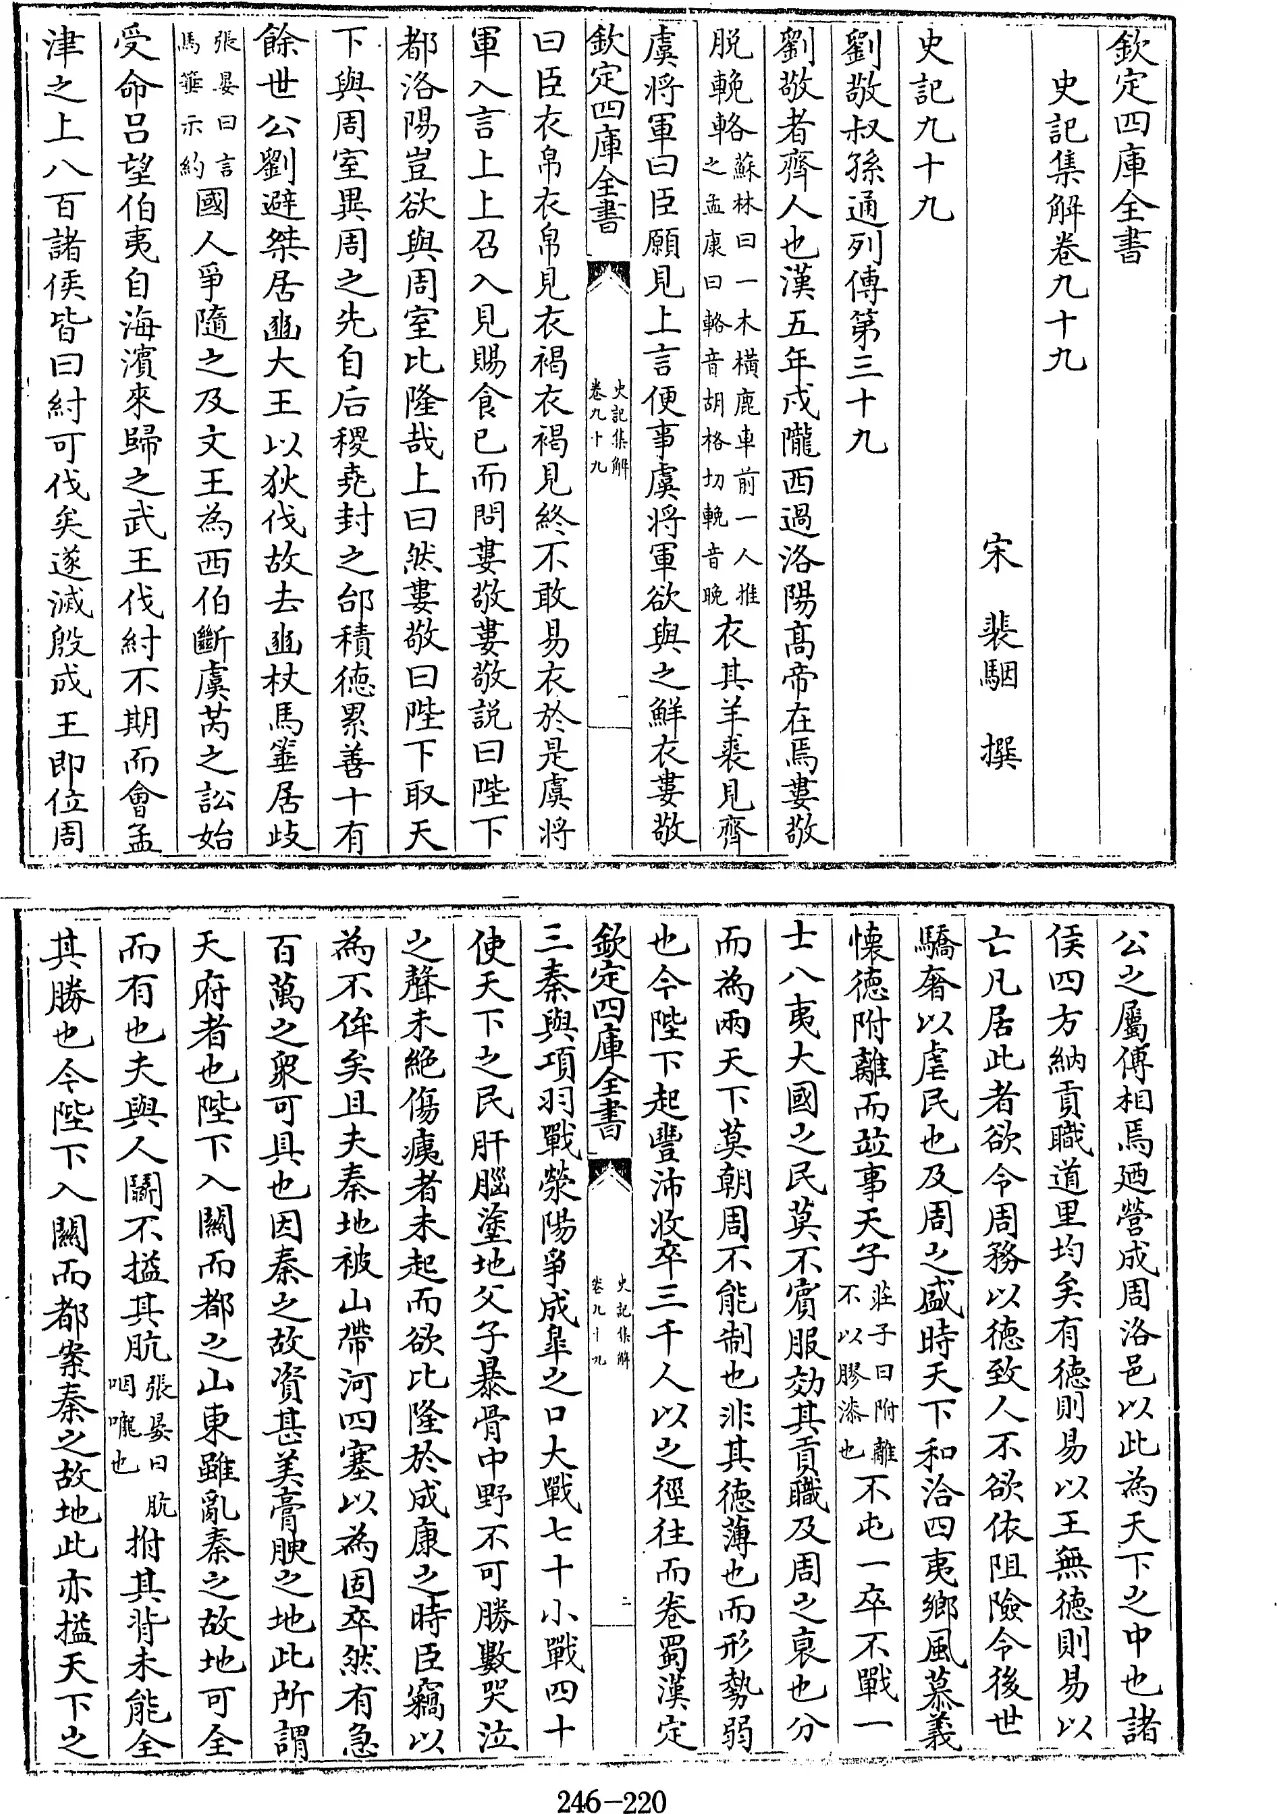 欽定四庫全書
史記集解卷九十九
宋 裴駰 撰
史記九十九
劉敬叔孫通列傳第三十九
劉敬者齊人也漢五年戍隴西過洛陽高帝在焉婁敬
脱輓輅蘇林曰一木橫鹿車前一人推之孟康曰輅音胡格切輓音晚衣其羊裘見齊
虞將軍曰臣願見上言便事虞將軍欲與之鮮衣婁敬
欽定四庫全書 史記集解卷九十九 一
曰臣衣帛衣帛見衣褐衣褐見終不敢易衣於是虞將
軍入言上上召入見賜食已而問婁敬婁敬説曰陛下
都洛陽豈欲與周室比隆哉上曰然婁敬曰陛下取天
下與周室異周之先自后稷堯封之邰積德累善十有
餘世公劉避桀居豳大王以狄伐故去豳杖馬箠居歧
張晏曰言馬箠示約國人爭隨之及文王為西伯斷虞芮之訟始
受命吕望伯夷自海濱來歸之武王伐紂不期而會孟
津之上八百諸侯皆曰紂可伐矣遂滅殷成王即位周
公之屬傅相焉廼營成周洛邑以此為天下之中也諸
侯四方納貢職道里均矣有德則易以王無德則易以
亡凡居此者欲令周務以德致人不欲依阻險令後世
驕奢以虐民也及周之盛時天下和洽四夷鄉風慕義
懷德附離而竝事天子莊子曰附離不以膠漆也不屯一卒不戰一
士八夷大國之民莫不賓服効其貢職及周之衰也分
而為兩天下莫朝周不能制也非其德薄也而形勢弱
也今陛下起豐沛收卒三千人以之徑往而卷蜀漢定
欽定四庫全書 史記集解卷九十九 二
三秦與項羽戰滎陽爭成臯之口大戰七十小戰四十
使天下之民肝腦塗地父子暴骨中野不可勝數哭泣
之聲未絶傷痍者未起而欲比隆於成康之時臣竊以
為不侔矣且夫秦地被山帶河四塞以為固卒然有急
百萬之衆可具也因秦之故資甚美膏腴之地此所謂
天府者也陛下入關而都之山東雖亂秦之故地可全
而有也夫與人鬬不搤其肮張晏曰肮咽嚨也拊其背未能全
其勝也今陛下入關而都案秦之故地此亦搤天下之
246-220